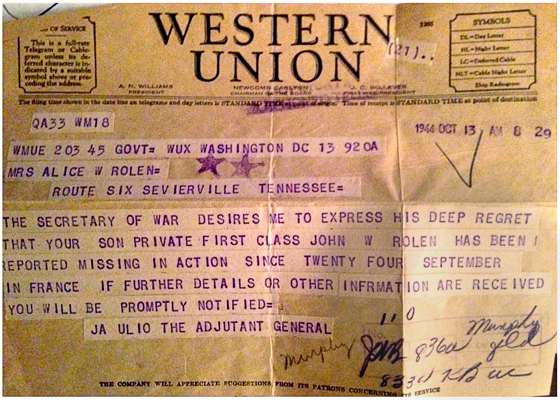 OF SERVICE
This is a full-rate
Telegram or Cable-
gram unless its de-
ferred character is in-
dicated by a suitable
symbol above or pre-
ceding the address.
WESTERN
UNION
1220
(27)..
SYMBOLS
DL=Day Letter
NL=Night Letter
LC=Deferred Cable
NLT=Cable Night Letter
Ship Radiogram
A. N. WILLIAMS
PRESIDENT
NEWCOMB CARLTON
CHAIRMAN OF THE BOARD
J. C. WILLEVER
The filing time shown in the date line on telegrams and day letters is STANDARD TIME at point of origin. Time of receipt is STANDARD TIME at point of destination
QA33 WM18
1944 OCT 13 AM 8 29
WMUE 203 45 GOVT= WUX WASHINGTON DC 13 920A
MRS ALICE W ROLEN=
ROUTE SIX SEVIERVILLE TENNESSEE=
THE SECRETARY OF WAR DESIRES ME TO EXPRESS HIS DEEP REGRET
THAT YOUR SON PRIVATE FIRST CLASS JOHN W ROLEN HAS BEEN
REPORTED MISSING IN ACTION SINCE TWENTY FOUR SEPTEMBER
IN FRANCE IF FURTHER DETAILS OR OTHER INFRMATION ARE RECEIVED
YOU WILL BE PROMPTLY NOTIFIED=
JA ULIO THE ADJUTANT GENERAL
Murphy
836a
Murphy
THE COMPANY WILL APPRECIATE SUGGESTIONS FROM ITS PATRONS CONCERNING ITS SERVICE